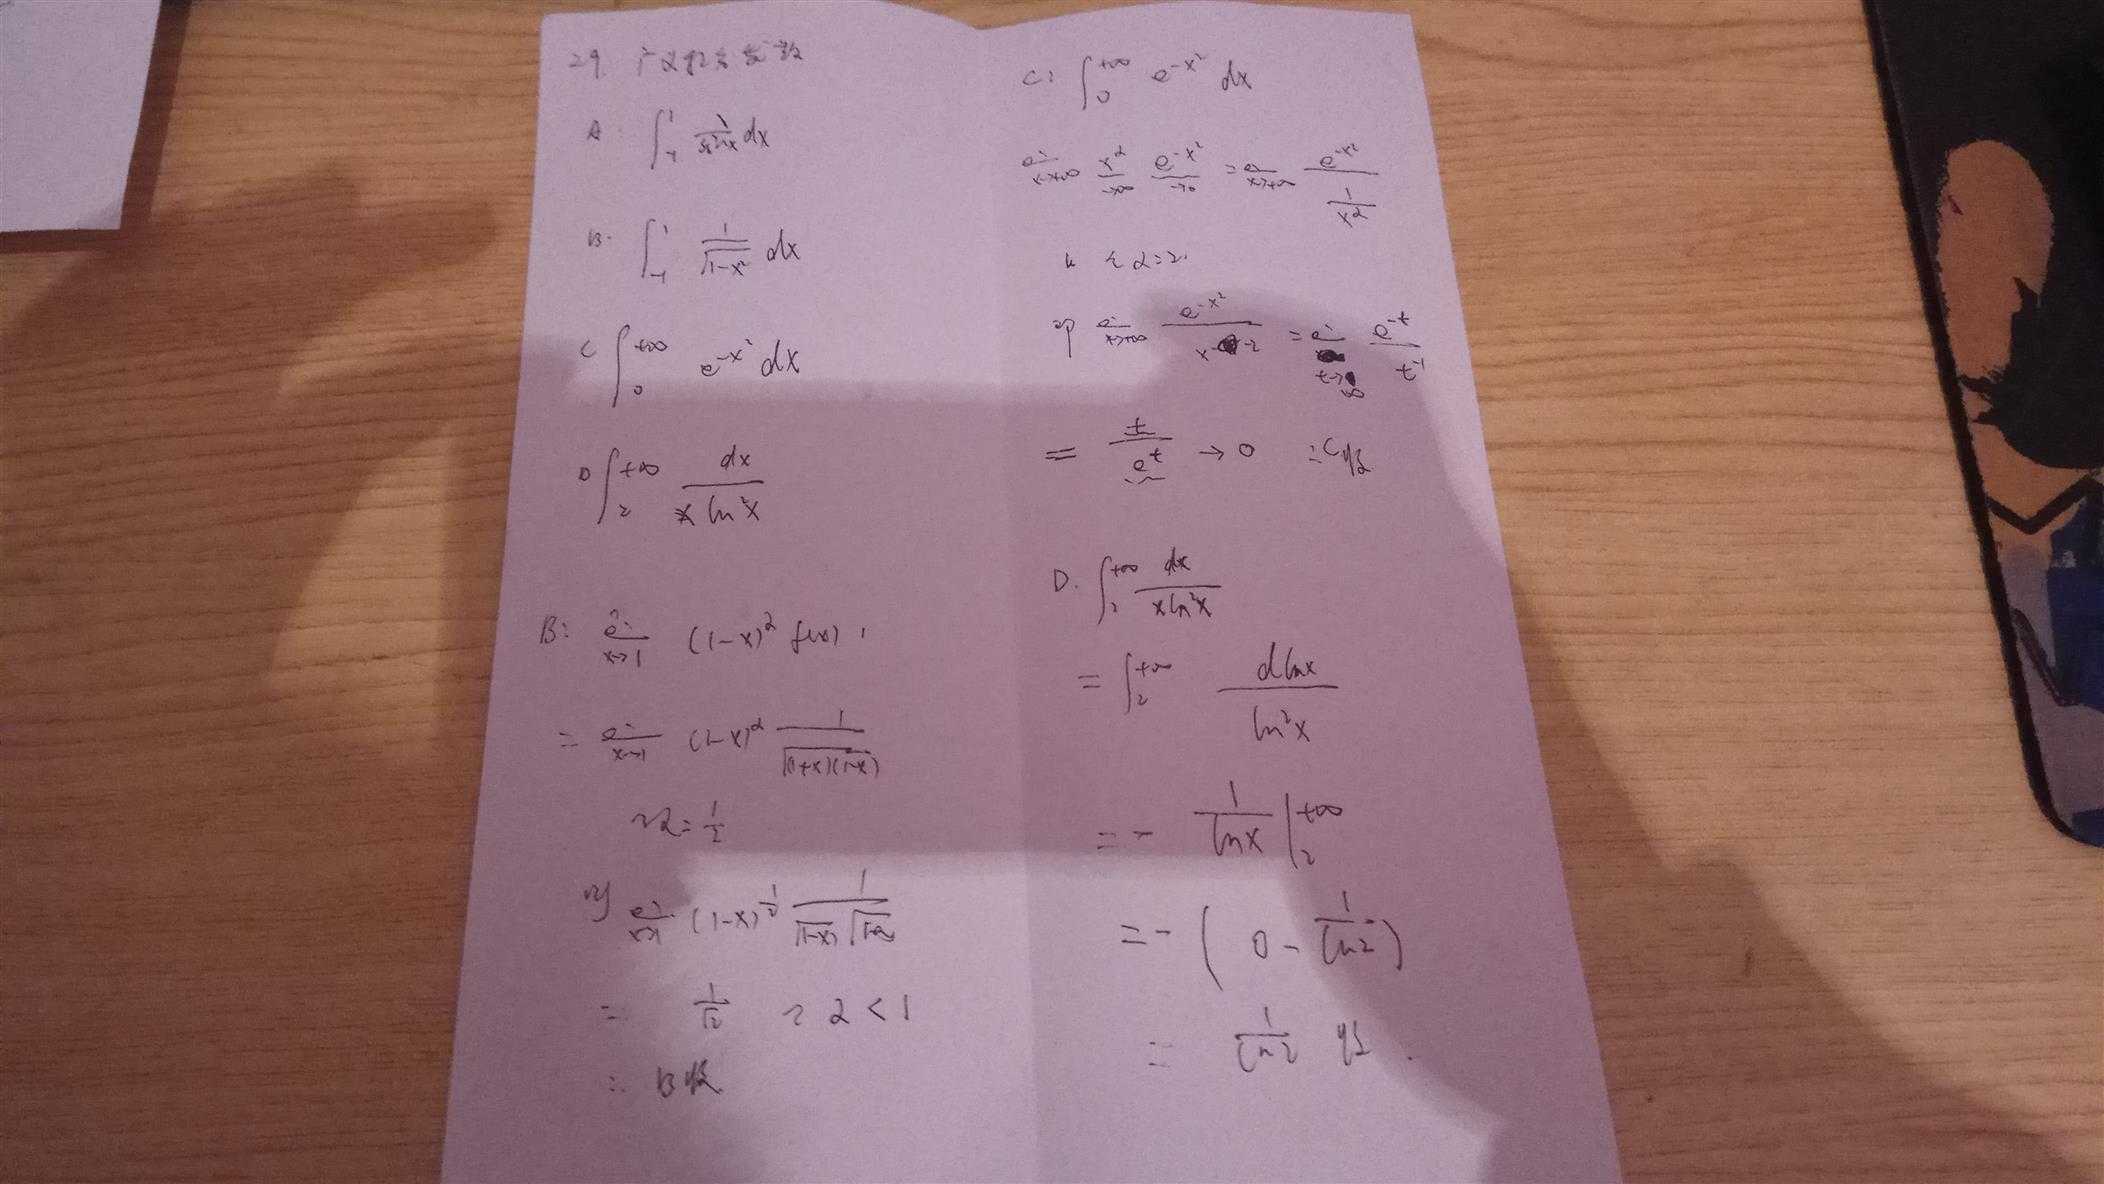 29. 广义积分发散
A. ∫_{-1}^{1} 1/sinx dx
B. ∫_{-1}^{1} 1/√(1-x²) dx
C ∫_{0}^{+∞} e^{-x²} dx
D ∫_{2}^{+∞} dx/(x ln²x)
B: lim_{x→1} (1-x)^α f(x),
= lim_{x→1} (1-x)^α 1/√((1+x)(1-x))
α = 1/2
则 lim_{x→1} (1-x)^{1/2} 1/(√(1-x) √(1+x))
= 1/√2 α < 1
∴ B收
C: ∫_{0}^{+∞} e^{-x²} dx
lim_{x→+∞} x^α →∞ e^{-x²} →0 = lim_{x→+∞} e^{-x²}/(1/x^α)
α=2.
则 lim_{x→+∞} e^{-x²}/x^{-2} = lim_{t→+∞} e^{-t}/t^{-1}
= t/e^t → 0 ∴C收
D. ∫_{2}^{+∞} dx/(x ln²x)
= ∫_{2}^{+∞} d lnx/ln²x
= - 1/lnx |_{2}^{+∞}
= - ( 0 - 1/ln2 )
= 1/ln2 收.